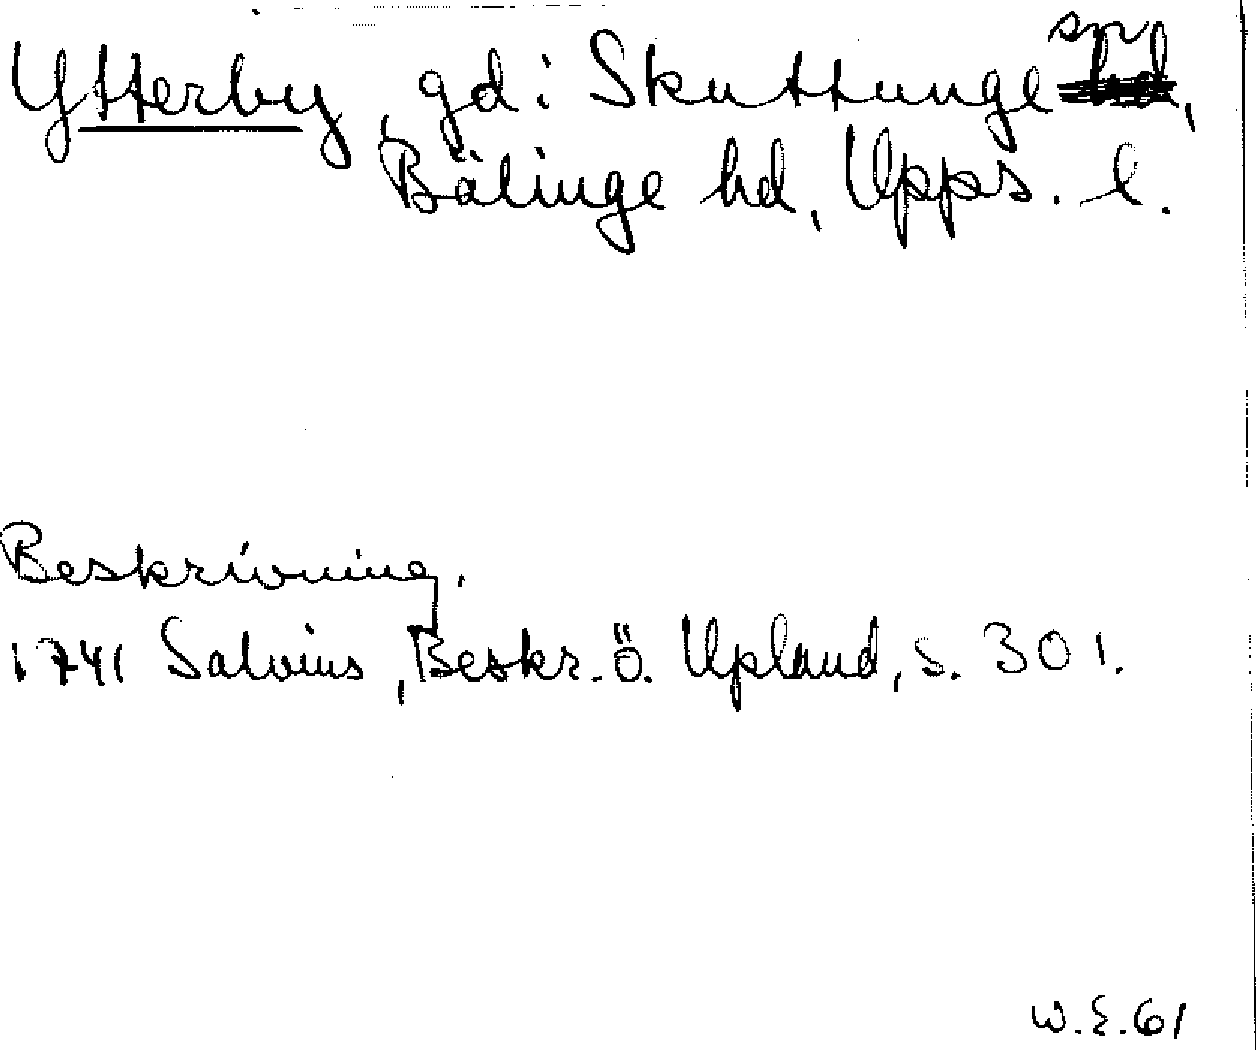 Ytterby, gd i Skuttunge sn,
Bälinge hd, Upps. l.
Beskrivning.
1741 Salvius, Beskr. ö. Upland, s. 301.
W.E.61